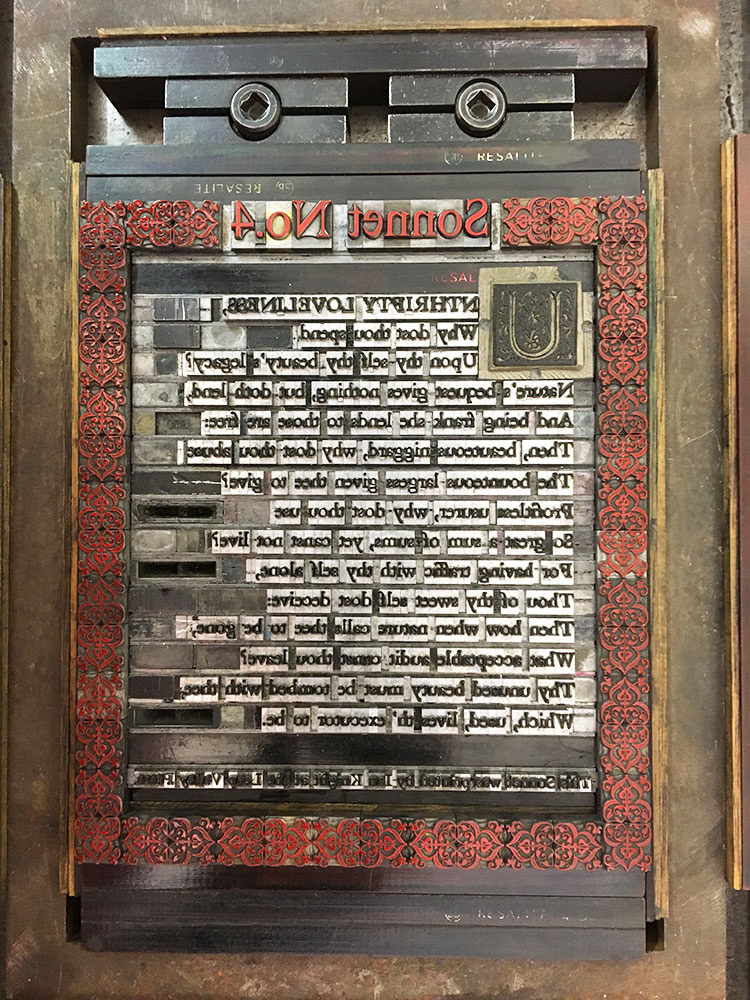 RESALITE
RESALITE
Sonnet No.4
RESAL
U
NTHRIFTY LOVELINESS,
Why dost thou spend
Upon thy self thy beauty's legacy?
Nature's bequest gives nothing, but doth lend,
And being frank she lends to those are free:
Then, beauteous niggard, why dost thou abuse
The bounteous largess given thee to give?
Profitless usurer, why dost thou use
So great a sum of sums, yet canst not live?
For having traffic with thy self alone,
Thou of thy sweet self dost deceive:
Then how when nature calls thee to be gone,
What acceptable audit canst thou leave?
Thy unused beauty must be tombed with thee,
Which, used, lives th' executor to be.
This Sonnet was printed by Ian Knight at the Lean Valley Press
RESALITE